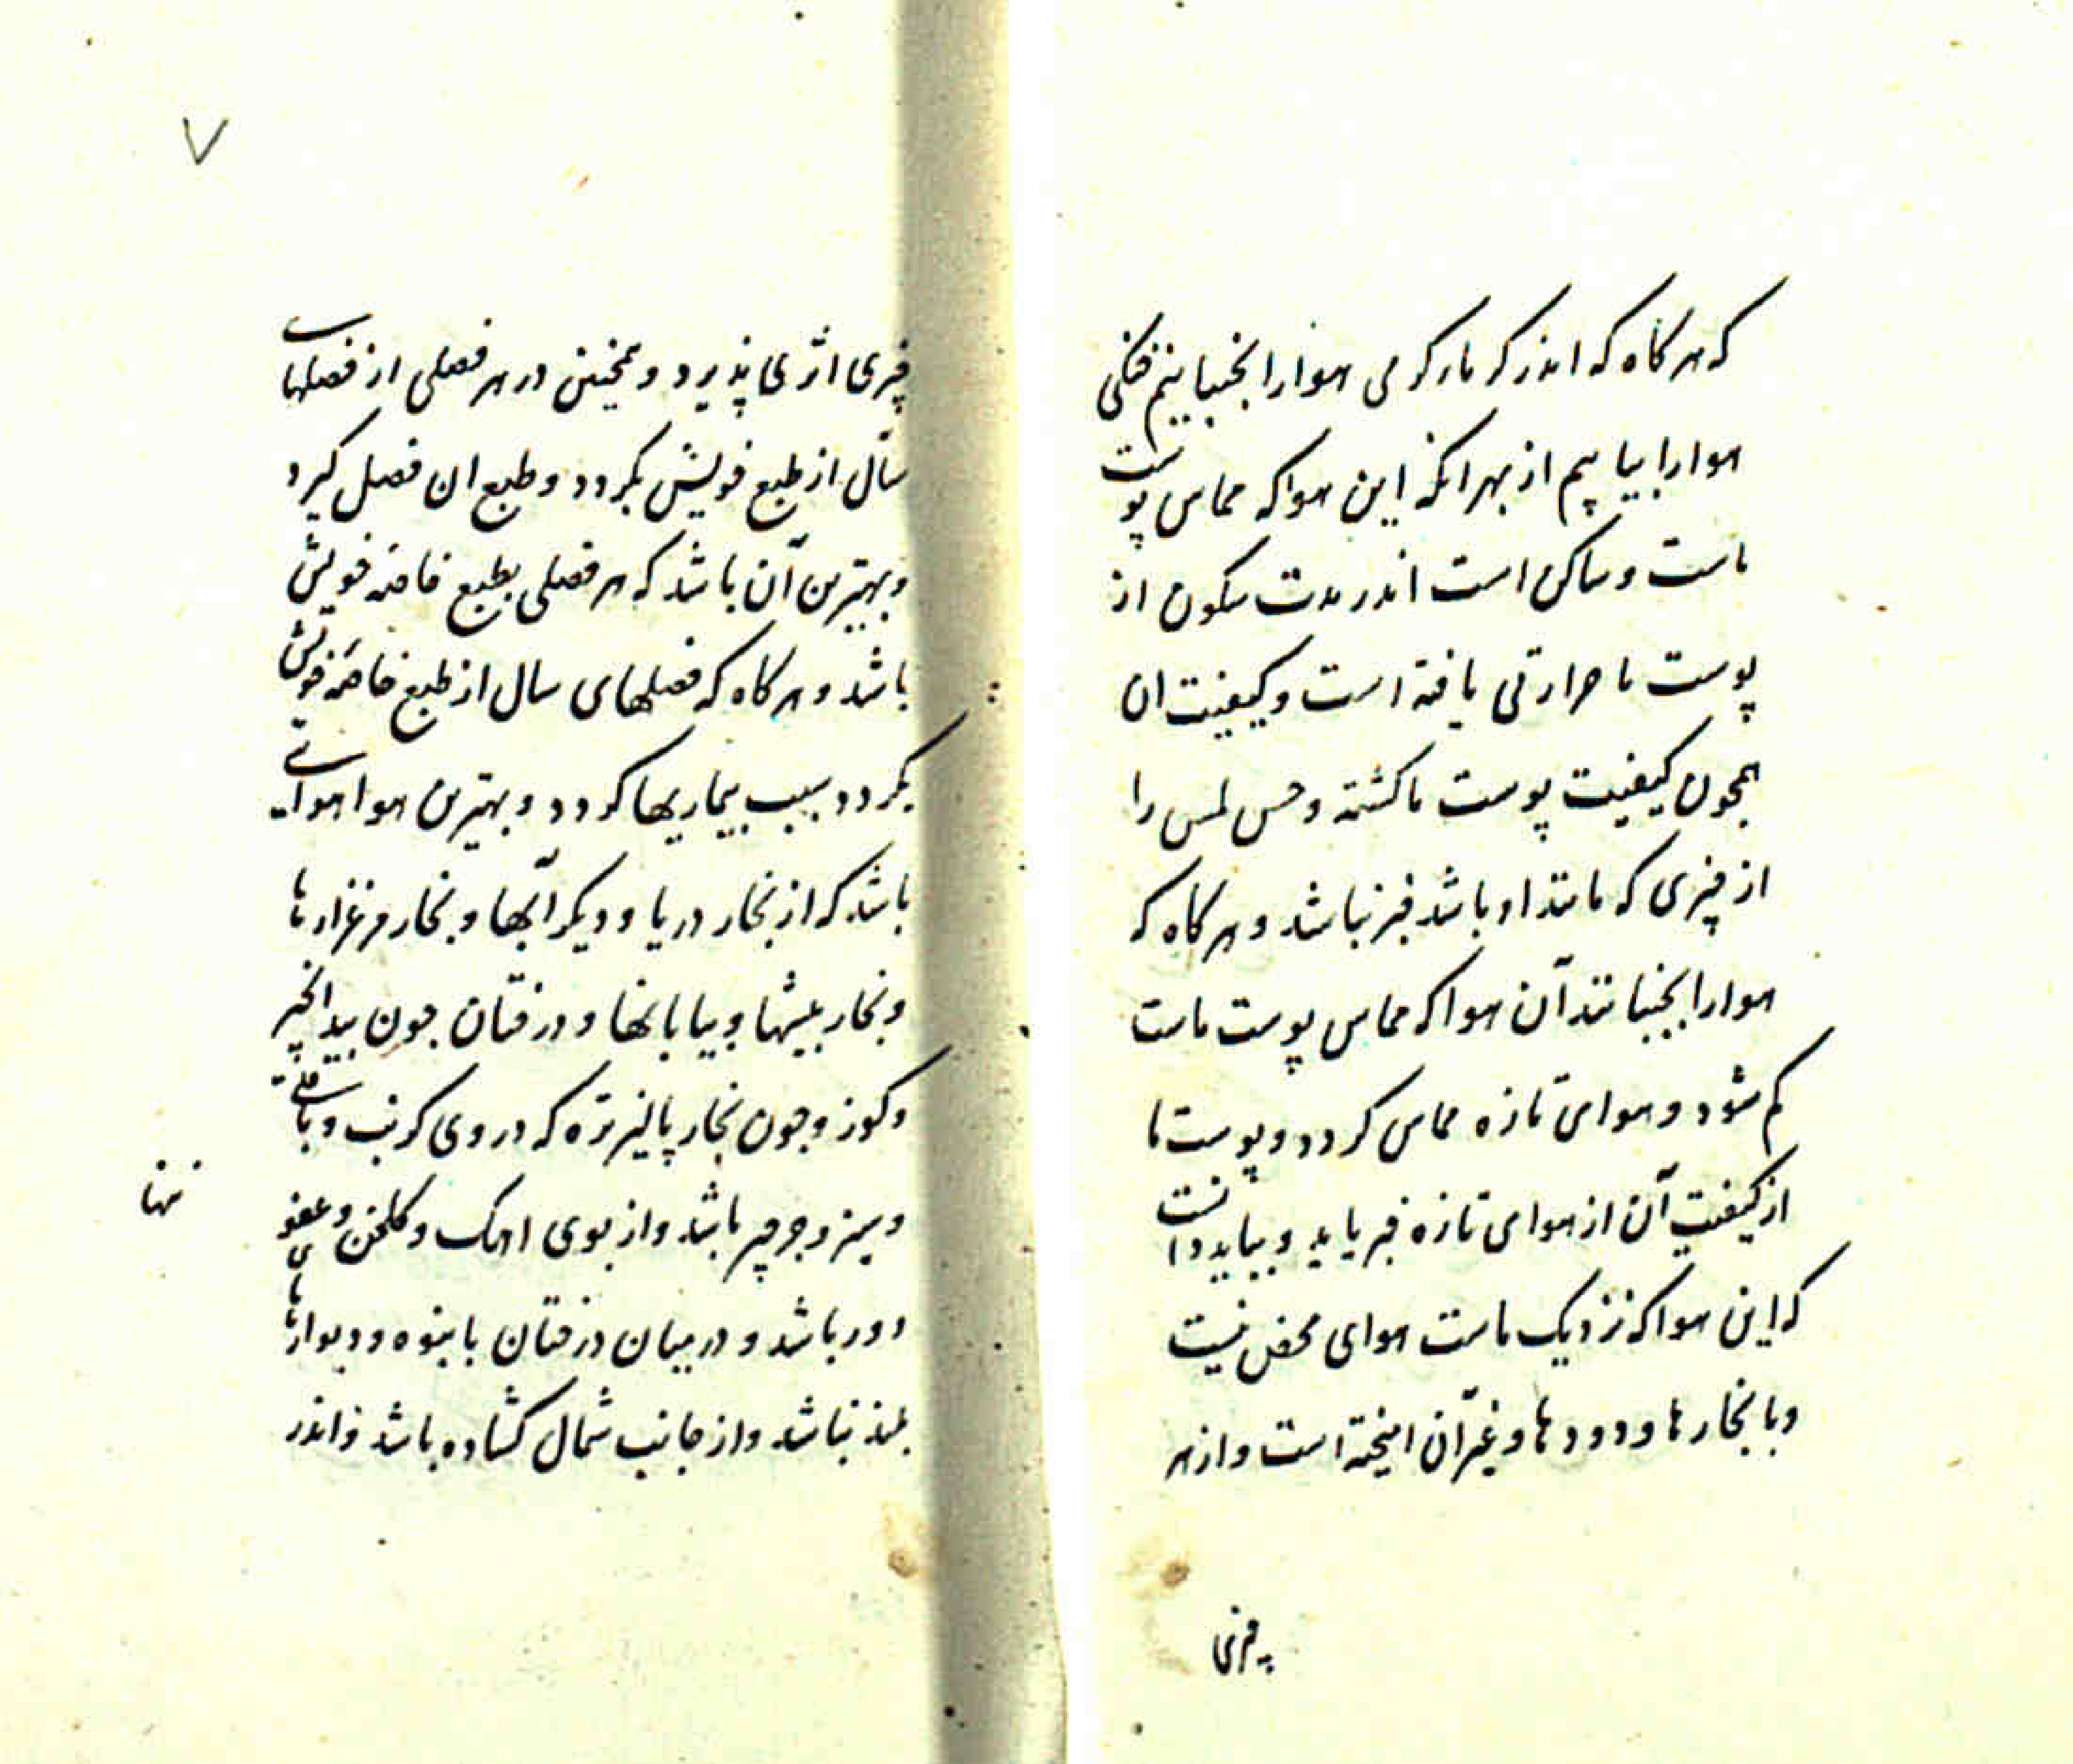 که هرگاه که اندر گرمابه گرمی هوا را بجنبانیم خنکی
هوا را بیابیم از بهر انکه این هوا که مماس پوست
ماست و ساکن است اندر مدت سکون از
پوست ما حرارتی یافته است و کیفیت ان
همچون کیفیت پوست ما کشته و حس لمس را
از چیزی که مانند او باشد خبر نباشد و هرکاه که
هوا را بجنبانند آن هوا که مماس پوست ماست
کم شود و هوای تازه مماس کردد و پوست ما
از کیفیت آن از هوای تازه خبر یابد و بباید دانست
که این هوا که نزدیک ماست هوای محض نیست
و با بخارها و دودها و غیر آن امیخته است و از هر
چیزی
۷
چیزی اثری می پذیرد و همچنین در هر فصلی از فصلهای
سال از طبع خویش بکردد و طبع ان فصل کیرد
و بهترین آن باشد که هر فصلی بطبع خاصه خویش
باشد و هرکاه که فصلهای سال از طبع خاصه خویش
بکردد سبب بیماریها کردد و بهترین هوا هوائی
باشد که از بخار دریا و دیکر آبها و بخار مرغزارها
و بخار بیشها و بیابانها و درختان چون بید انجیر
و کوز و چون بخار پالیز تره که در وی کرنب و باقلی
و سیر و جرجیر باشد و از بوی اهک و کلخن و عفو
نتها
دور باشد و در میان درختان بانبوه و دیوارهای
بلند نباشد و از جانب شمال کشاده باشد و اندر